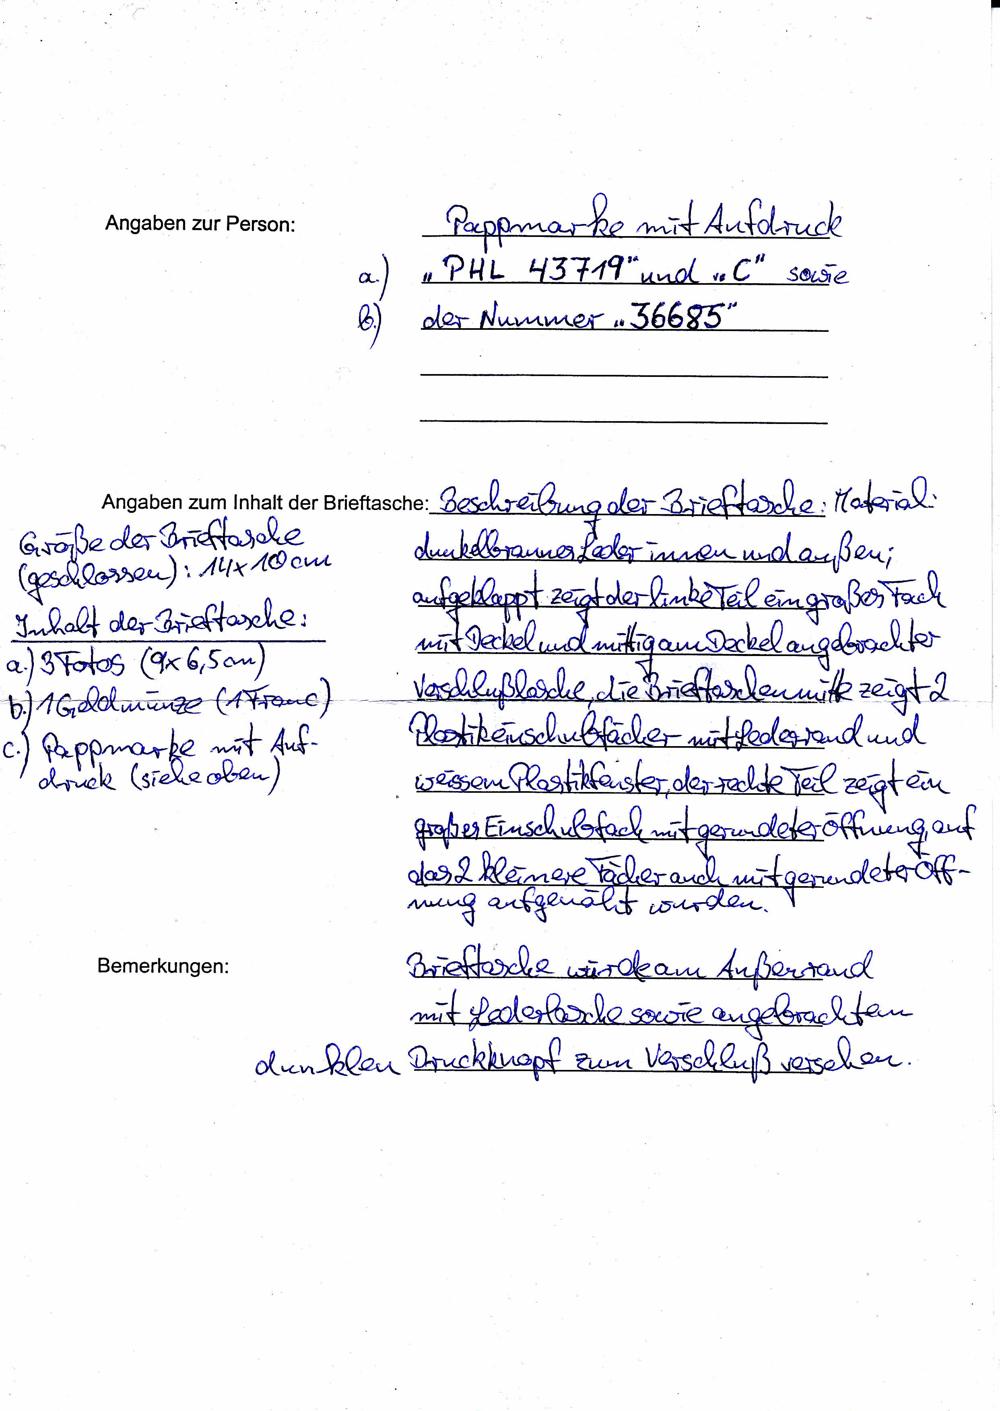 Angaben zur Person: Pappmarke mit Aufdruck
a.) „PHL 43719" und „C" sowie
b.) der Nummer „36685"
Angaben zum Inhalt der Brieftasche: Beschreibung der Brieftasche: Material:
dunkelbraunes Leder innen und außen;
aufgeklappt zeigt der linke Teil ein großes Fach
mit Deckel und mittig am Deckel angebrachter
Verschlußlasche, die Brieftaschenmitte zeigt 2
Plastikeinschubfächer mit Lederrand und
weissem Plastikfenster, der rechte Teil zeigt ein
großes Einschubfach mit gerundeter Öffnung, auf
das 2 kleinere Fächer auch mit gerundeter Öff-
nung aufgenäht wurden.
Größe der Brieftasche
(geschlossen): 14x10cm
Inhalt der Brieftasche:
a.) 3 Fotos (9x6,5cm)
b.) 1 Geldmünze (1 Franc)
c.) Pappmarke mit Auf-
druck (siehe oben)
Bemerkungen: Brieftasche wurde am Außenrand
mit Lederlasche sowie angebrachtem
dunklen Druckknopf zum Verschluß versehen.